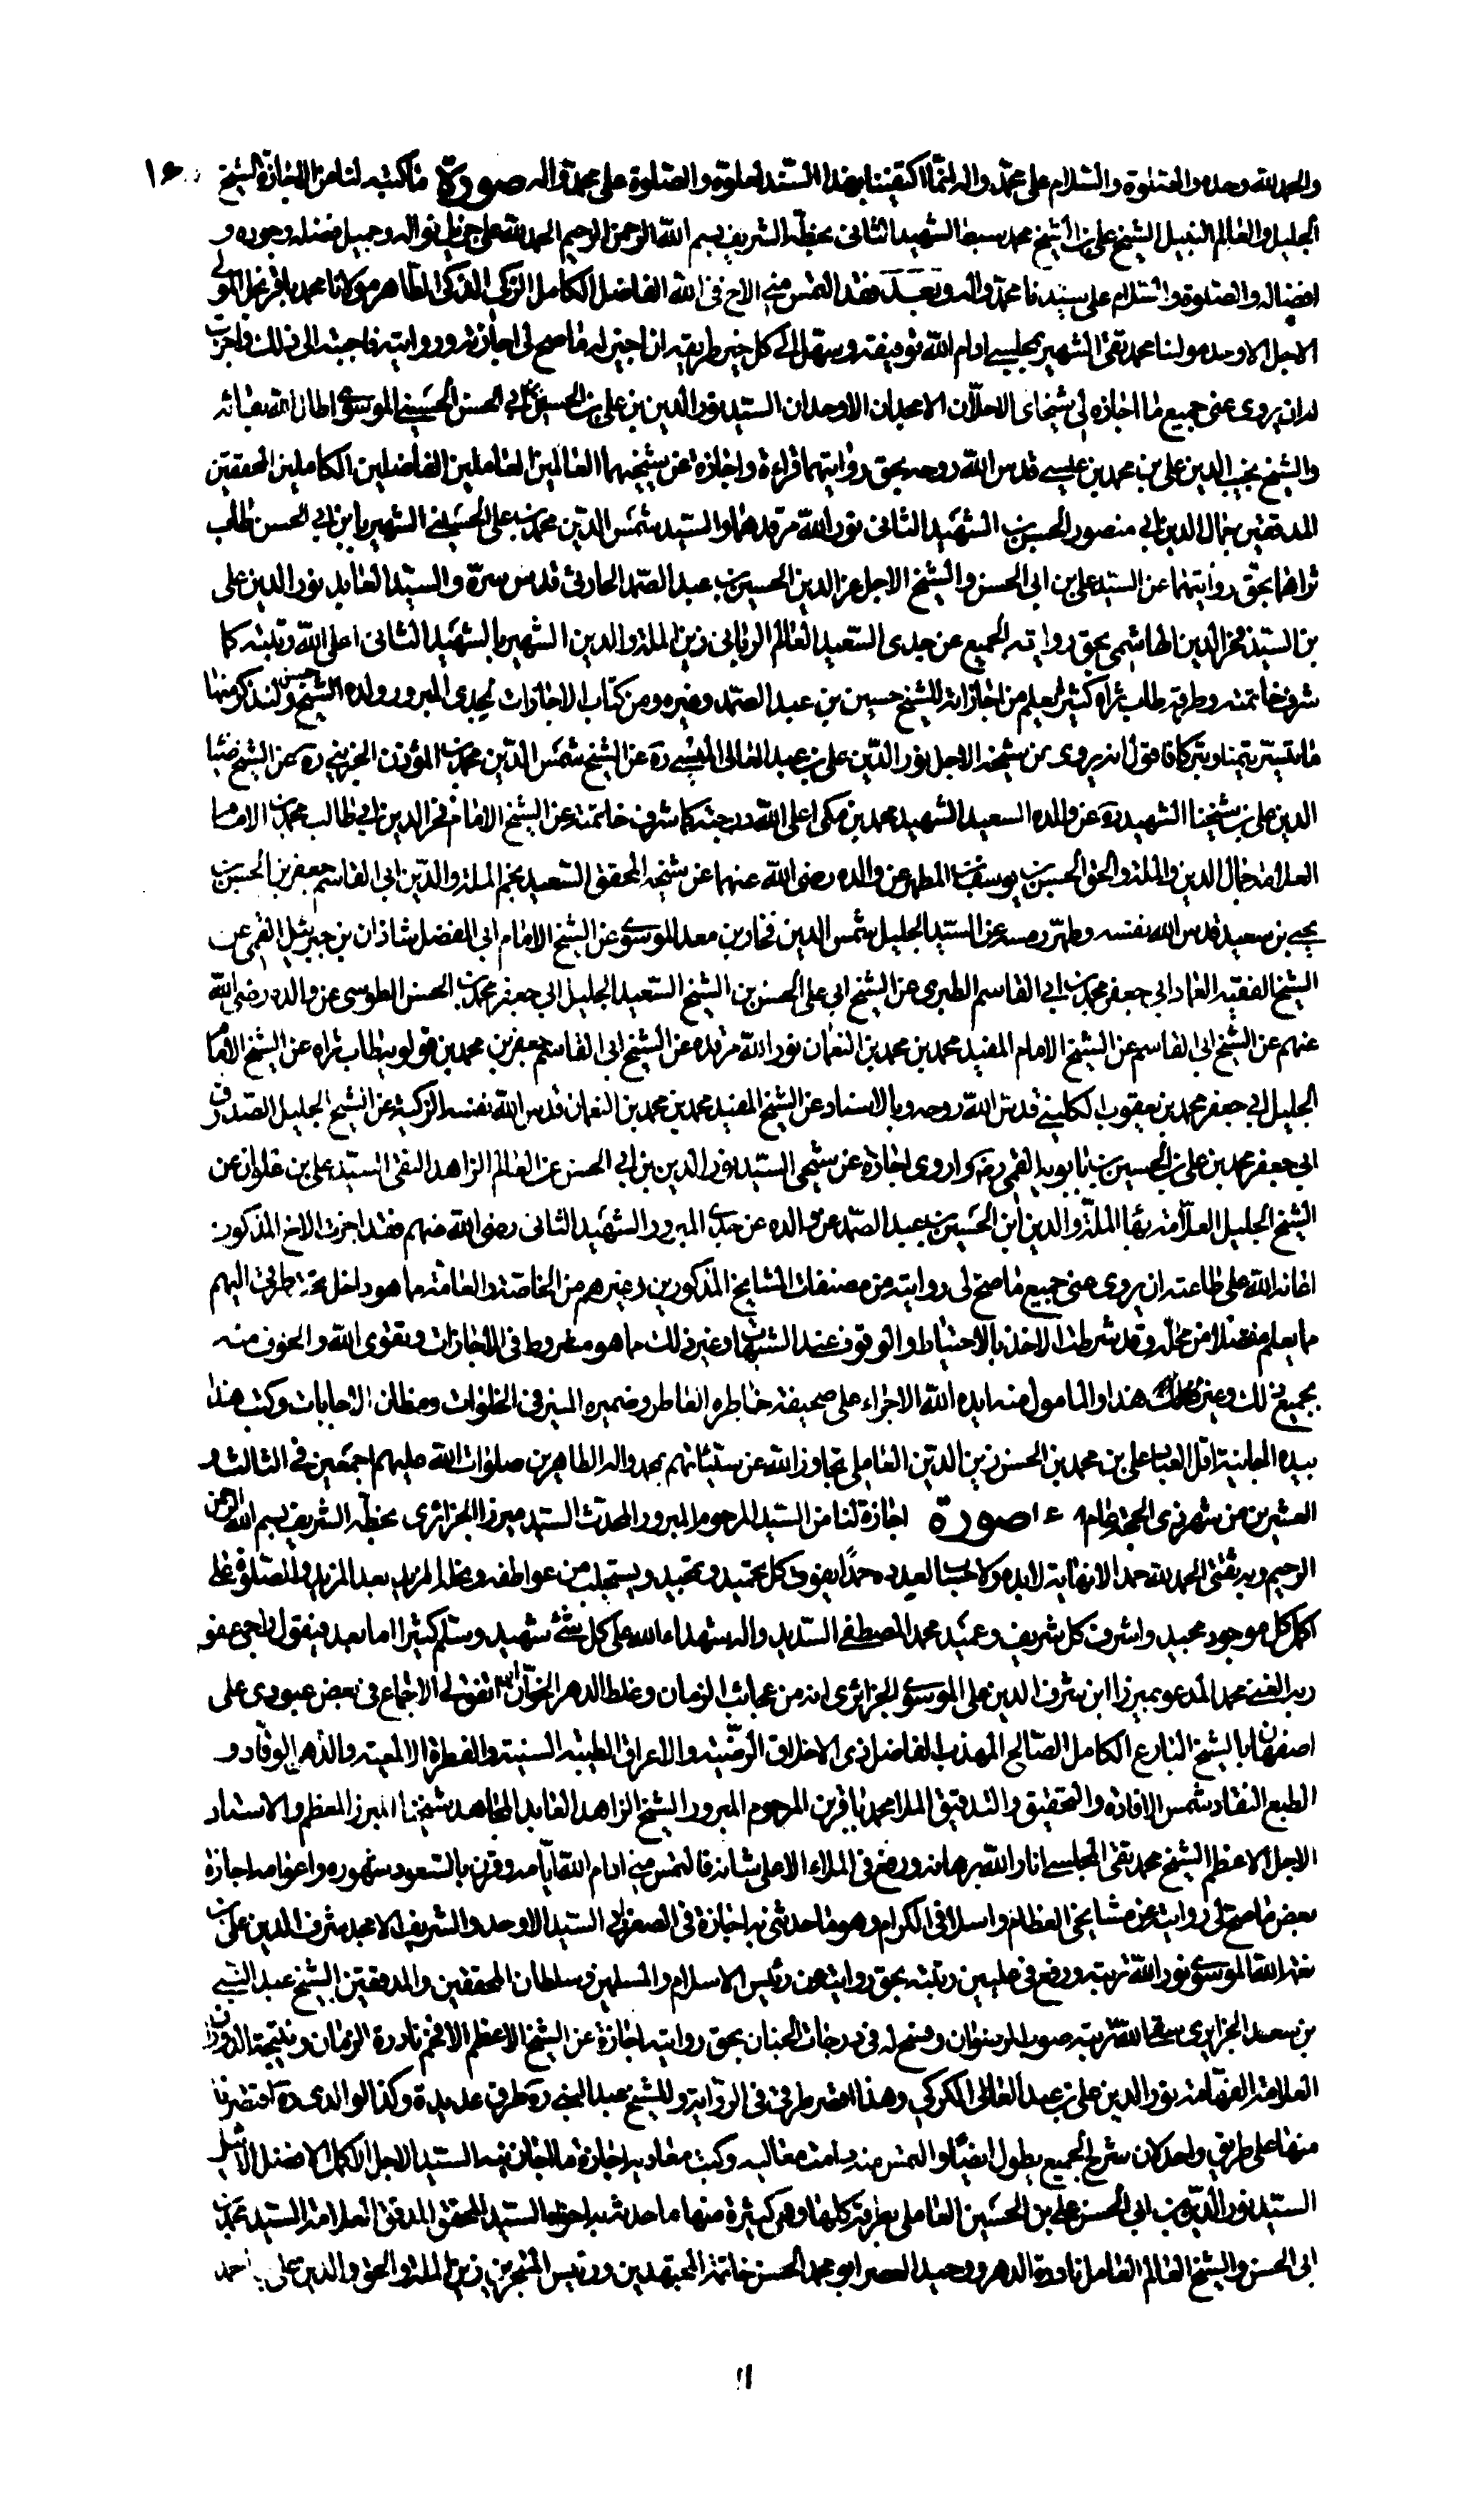 والحمد لله وحده والصلوة والسلام على محمد واله انما اكتفينا بهذا السند لعلوه والصلوة على محمد واله صورة ما كتبه لنا من الاجازة الشيخ ١٥٠
الجليل والعالم النبيل الشيخ على بن الشيخ محمد سبط الشهيد الثانى بخطه الشريف بسم الله الرحمن الرحيم الحمد لله على جزيل نواله وجميل فضله وجوده و
افضاله والصلوة والسلام على سيدنا محمد واله وبعد فقد التمس منى الاخ فى الله الفاضل الكامل الزكى الذكى الطاهر مولانا محمد باقر نجل المولى
الاجل الاوحد مولنا محمد تقى الشهير بمجلسى ادام الله توفيقه وسهل الى كل خير طريقه ان اجيز له ما صح لى اجازته وروايته فاجبته الى ذلك واجزت
له ان يروى عنى جميع ما اجازه لى شيخاى الاجلان الامجدان الاوحدان السيد نور الدين بن على بن الحسين بن ابى الحسن الحسينى الموسوى اطال الله بقائه
والشيخ نجيب الدين على بن محمد بن عيسى قدس الله روحه بحق روايتهما قراءة واجازة عن شيخيهما العالمين العاملين الفاضلين الكاملين المحققين
المدققين جمال الدين ابى منصور الحسن بن الشهيد الثانى نور الله مرقدهما والسيد شمس الدين محمد بن على الحسينى الشهير بابن ابى الحسن طاب
ثراهما بحق روايتهما عن السيد على بن ابى الحسن والشيخ الاجل عز الدين الحسين بن عبد الصمد الحارثى قدس سره والسيد العابد نور الدين على
بن السيد فخر الدين الهاشمى بحق رواية الجميع عن جدى السعيد العالم الربانى زين الملة والدين الشهير بالشهيد الثانى اعلى الله رتبته كما
شرف خاتمته وطرقه طاب ثراه كثيرة يعلم من اجازاته للشيخ حسين بن عبد الصمد وغيره ومن كتاب الاجازات لجدى المبرور ولده الشيخ حسن ولنذكر منها
ما تيسر تيمنا وتبركا فاقول انه يروى عن شيخه الاجل نور الدين على بن عبد العالى الميسى ره عن الشيخ شمس الدين محمد بن المؤذن الجزينى ره عن الشيخ ضيا
الدين على بن شيخنا الشهيد ره عن والده السعيد الشهيد محمد بن مكى اعلى الله درجته كما شرف خاتمته عن الشيخ الامام فخر الدين ابى طالب محمد بن الامام
العلامة جمال الدين والملة والحق الحسن بن يوسف بن المطهر عن والده رضى الله عنهما عن شيخه المحقق السعيد نجم الملة والدين ابى القاسم جعفر بن الحسن بن
يحيى بن سعيد قدس الله نفسه وطهر رمسه عن السيد الجليل شمس الدين فخار بن معد الموسوى عن الشيخ الامام ابى الفضل شاذان بن جبرئيل القمى عن
الشيخ الفقيه العماد ابى جعفر محمد بن ابى القاسم الطبرى عن الشيخ ابى على الحسن بن الشيخ السعيد الجليل ابى جعفر محمد بن الحسن الطوسى عن والده رضى الله
عنهم عن الشيخ ابى القاسم عن الشيخ الامام المفيد محمد بن محمد بن النعمان نور الله مرقده عن الشيخ ابى القاسم جعفر بن محمد بن قولويه طاب ثراه عن الشيخ الامام
الجليل ابى جعفر محمد بن يعقوب الكلينى قدس الله روحه وبالاسناد عن الشيخ المفيد محمد بن محمد بن النعمان قدس الله نفسه الزكية عن الشيخ الجليل الصدوق
ابى جعفر محمد بن على بن الحسين بن بابويه القمى واروى اجازة عن شيخى السيد نور الدين بن ابى الحسن عن العالم الزاهد التقى السيد على بن علوان عن
الشيخ الجليل العلامة بهاء الملة والدين ابن الحسين بن عبد الصمد عن والده عن جدى المبرور الشهيد الثانى رضى الله عنهم فقد اجزت الاخ المذكور
اعانه الله على طاعته ان يروى عنى جميع ما صح لى روايته من مصنفات المشايخ المذكورين وغيرهم من الخاصة والعامة مما هو داخل تحت طرقى اليهم
مما يعلم مفصلا من محله وقد شرطت الاخذ بالاحتياط والوقوف عند الشبهات وغير ذلك مما هو مشروط فى الاجازات وتقوى الله والخوف منه
بجميع ذلك وغير ذلك هذا والمامول منه ايده الله الاجراء على صحيفة خاطره العاطر وضميره المنير فى الخلوات ومظان الاجابات وكتب هذا
بيده الجانية اقل العباد على بن محمد بن الحسن زين الدين العاملى تجاوز الله عن سيئاتهم بمحمد واله الطاهرين صلوات الله عليهم اجمعين فى الثالث و
العشرين من شهر ذى الحجة عام صورة اجازة لنا من السيد المرحوم المبرور المحدث السيد ميرزا الجزائرى بخطه الشريف بسم الله الرحمن
الرحيم وبه ثقتى الحمد لله حمدا لا نهاية لابده ولا حساب لعدده حمدا يفوق كل تحميد وتمجيد ويستجلب من عواطفه المزيد بعد المزيد والصلوة على
اكمل كل موجود مجيد واشرف كل شريف وعميد محمد المصطفى السديد واله شهداء الله على كل شئ شهيد وسلم كثيرا اما بعد فيقول الراجى عفو
ربه الغنى محمد المدعو بميرزا ابن شرف الدين على الموسوى الجزائرى انه من عجائب الزمان وغلط الدهر الخوان انه اتفق لى الاجتماع فى بعض عبورى على
اصفهان بالشيخ البارع الكامل الصالح المهذب الفاضل ذى الاخلاق الرضية والاعراق الطيبة السنية والفطرة الالمعية والذهن الوقاد و
الطبع النقاد شمس الافادة والتحقيق والتدقيق الملا محمد باقر بن المرحوم المبرور الشيخ الزاهد العابد المجاهد شيخنا المبرز المعظم والاستاد
الاجل الاعظم الشيخ محمد تقى المجلسى انار الله برهانه ورفع فى الملاء الاعلى شانه فالتمس منى ادام الله ايامه وقرن بالسعود شهوره واعوامه اجازة
بعض ما صح لى روايته عن مشايخى العظام واسلافى الكرام وهو ما حدثنى به اجازة فى الصغر ابى السيد الاوحد والشريف الامجد شرف الدين على بن
نعمة الله الموسوى نور الله تربته ورفع فى عليين رتبته بحق روايته عن رئيس الاسلام والمسلمين وسلطان المحققين والمدققين الشيخ عبد النبى
بن سعد الجزايرى سقى الله تربته صوب الرضوان وفسح له فى درجات الجنان بحق روايته اجازة عن الشيخ الاعظم الافخم نادرة الزمان ونتيجة الدوران
العلامة الفهامة نور الدين على بن عبد العالى الكركى وهذا اقصر طرقى فى الرواية وللشيخ عبد النبى ره طرق عديدة وكذا لوالدى ره اقتصرنا
منها على طريق واحد لان شرح الجميع يطول ايضا والتمس منه دامت معاليه وكبت معاديه اجازة ما اجاز فيه السيد الاجل الاكمل الافضل الانبل
السيد نور الدين بن ابى الحسن على بن الحسين العاملى بطرقه كلها وهى كثيرة منها ما حدثه به اخوه السيد المحقق المدقق العلامة السيد محمد بن
ابى الحسن والشيخ العالم العامل نادرة الدهر ووحيد العصر ابو محمد الحسن خاتمة المجتهدين ورئيس المتبحرين زين الملة والحق والدين على بن احمد
١١